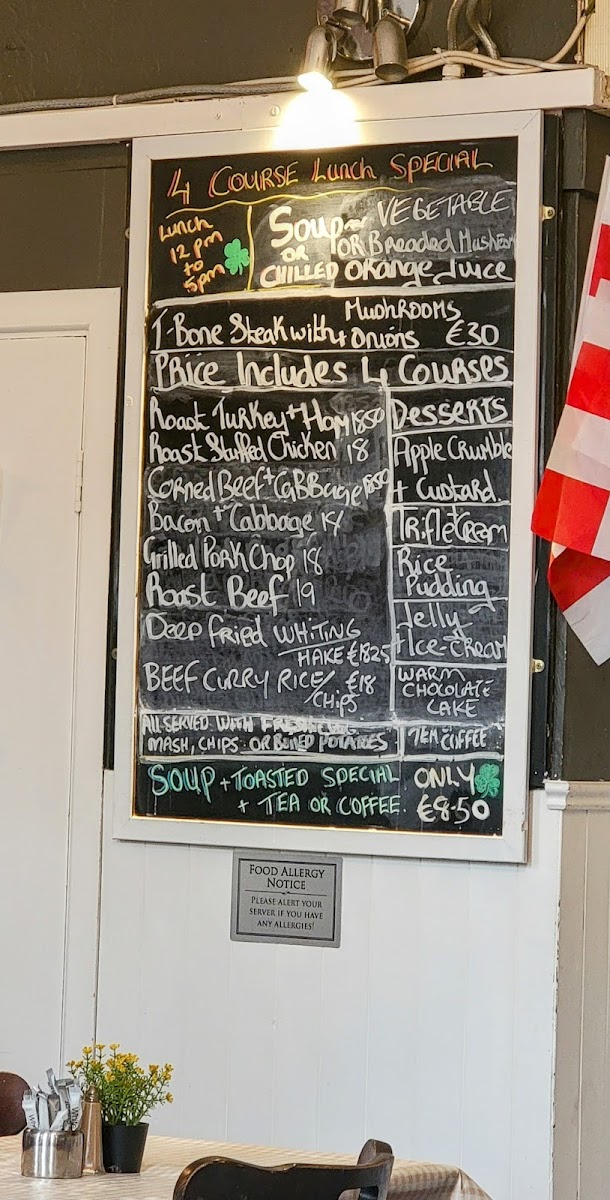 4 COURSE Lunch SPECIAL
Lunch
12 pm
to
5pm
Soup VEGETABLE
OR OR Breaded Mushroom
CHILLED ORange Juice
MushROOMS
T-Bone Steak with + Onions €30
PRice Includes 4 Courses
Roast Turkey + Ham 1850
Roast Stuffed Chicken 18
Corned Beef + CaBBage 1850
Bacon + Cabbage
Grilled PoRk Chop 18
Roast Beef 19
Deep fried WHITING
HAKE €1825
BEEF CURRY RICE/ €18
CHIPS
ALL SERVED WITH
MASH, CHIPS OR BOILED POTATOES
DesserTs
Apple Crumble
+ Custard
Trifle + Cream
Rice
Pudding
Jelly
+ Ice-CReam
WARM
CHOCOLATE
CAKE
TEA OR COFFEE
SOUP + TOASTED SPECIAL ONLY
+ TEA OR COFFEE. €8.50
FOOD ALLERGY
NOTICE
PLEASE ALERT YOUR
SERVER IF YOU HAVE
ANY ALLERGIES!